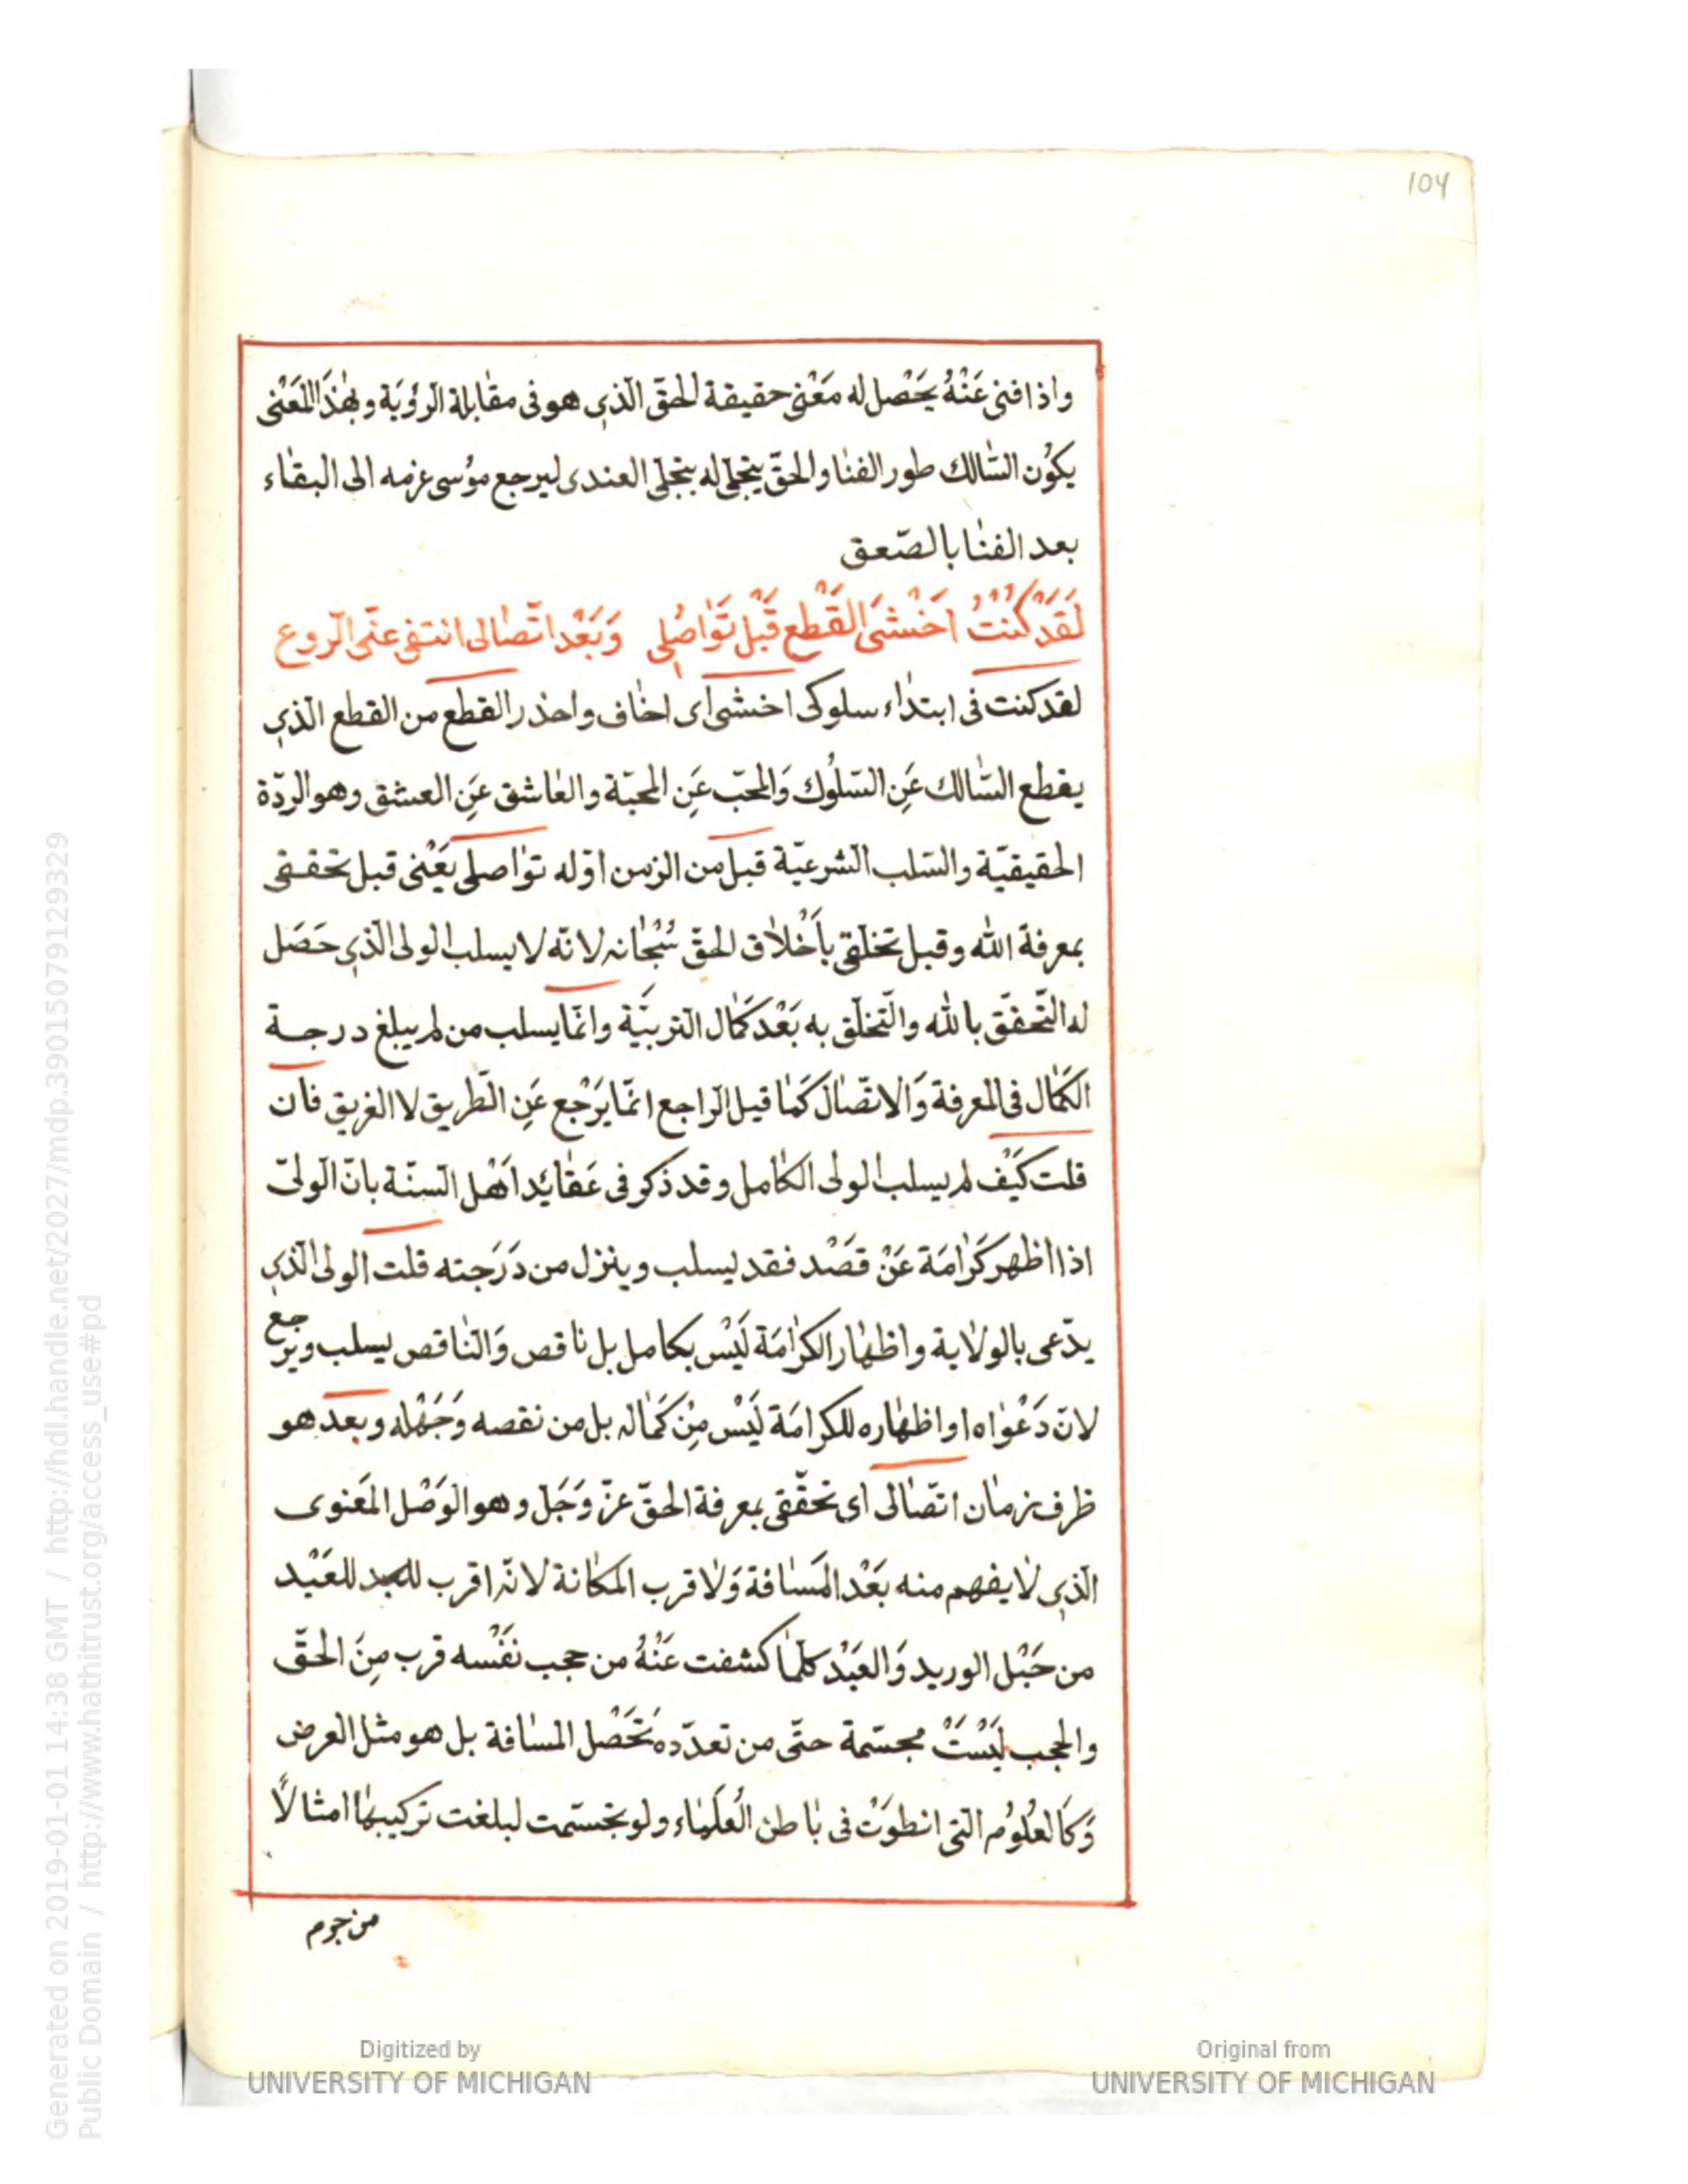 104
واذا فنى عَنْهُ يَحْصل له مَعْنى حقيقة الحقّ الّذى هو فى مقابلة الرؤيَة وبهٰذَا المَعْنى
يكوُن السّالك طور الفنا والحقّ يتجلّى له بتجلّى العندى ليرجع موُسى عزمه الى البقاء
بعد الفنا بالصّعق
لَقَدْ كُنْتُ اَخْشىَ القَطْع قَبْل تَوَاصُلى وَبَعْد اتّصالى انتفى عنّى الرّوع
لقد كنت فى ابتداء سلوكى اخشى اى اخاف واحذر القطع من القطع الّذى
يقطع السّالك عَنِ السّلُوك وَالمحبّ عَنِ المحبّة والعاشق عَنِ العشق وهو الردّة
الحقيقيّة والسّلب الشرعيّة قبل من الزمن اوّله تواصلى يَعْنى قبل تحققى
بمعرفة الله وقبل تخلّقى بأخْلاق الحقّ سُبْحانه لانّه لا يسلب الولى الّذى حَصَل
له التّحقّق بالله والتّخلّق به بَعْد كَمال التربيَّة وانّما يسلب من لم يبلغ درجة
الكَمال فى المعرفة وَالاتّصال كَما قيل الرّاجع انّما يَرْجع عَنِ الطّريق لا الغريق فان
قلت كَيْف لم يسلب الولى الكامل وقد ذكر فى عَقائد اَهْل السنّة بانّ الولىّ
اذا اظهر كَرامَة عَنْ قَصْد فقد ليسلب وينزل من دَرَجته قلت الولى الّذى
يدّعى بالولاية واظهار الكرامَة لَيْس بكامل بل ناقص وَالنّاقص يسلب ويرجع
لانّ دَعْواه او اظهاره للكرامَة لَيْس مِنْ كَماله بل من نقصه وَجَهْله وبعد هو
ظرف زمان اتّصالى اى تحقّقى بمعرفة الحقّ عزّ وَجَل وهو الوَصْل المَعنوى
الّذى لا يفهم منه بَعْد المَسافة وَلا قرب المكانة لانّه اقرب للعَبْيد
من حَبْل الوريد وَالعَبْد كلّما كشفت عَنْهُ من حجب نَفْسه قرب مِنَ الحقّ
والحجب لَيْسَتْ مجسّمة حتّى من تعدّده تَحْصُل المسافة بل هو مثل العرض
وَكَالعُلُومُ الّتى انطوَتْ فى باطن العُلَماء ولو تجسّمت لبلغت تركيبها امثالاً
من جرم
Generated on 2019-01-01 14:38 GMT / http://hdl.handle.net/2027/mdp.39015079129329
Public Domain / http://www.hathitrust.org/access_use#pd
Digitized by
UNIVERSITY OF MICHIGAN
Original from
UNIVERSITY OF MICHIGAN